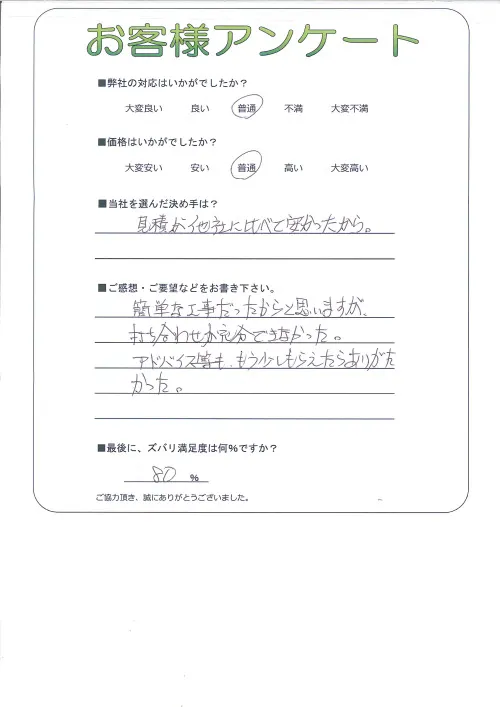 お客様アンケート
■弊社の対応はいかがでしたか？
大変良い　良い　普通　不満　大変不満
■価格はいかがでしたか？
大変安い　安い　普通　高い　大変高い
■当社を選んだ決め手は？
見積が他社に比べて安かったから。
■ご感想・ご要望などをお書き下さい。
簡単な工事だったからと思いますが、
打ち合わせが充分できなかった。
アドバイス等も、もう少しもらえたらありがた
かった。
■最後に、ズバリ満足度は何%ですか？
80 %
ご協力頂き、誠にありがとうございました。